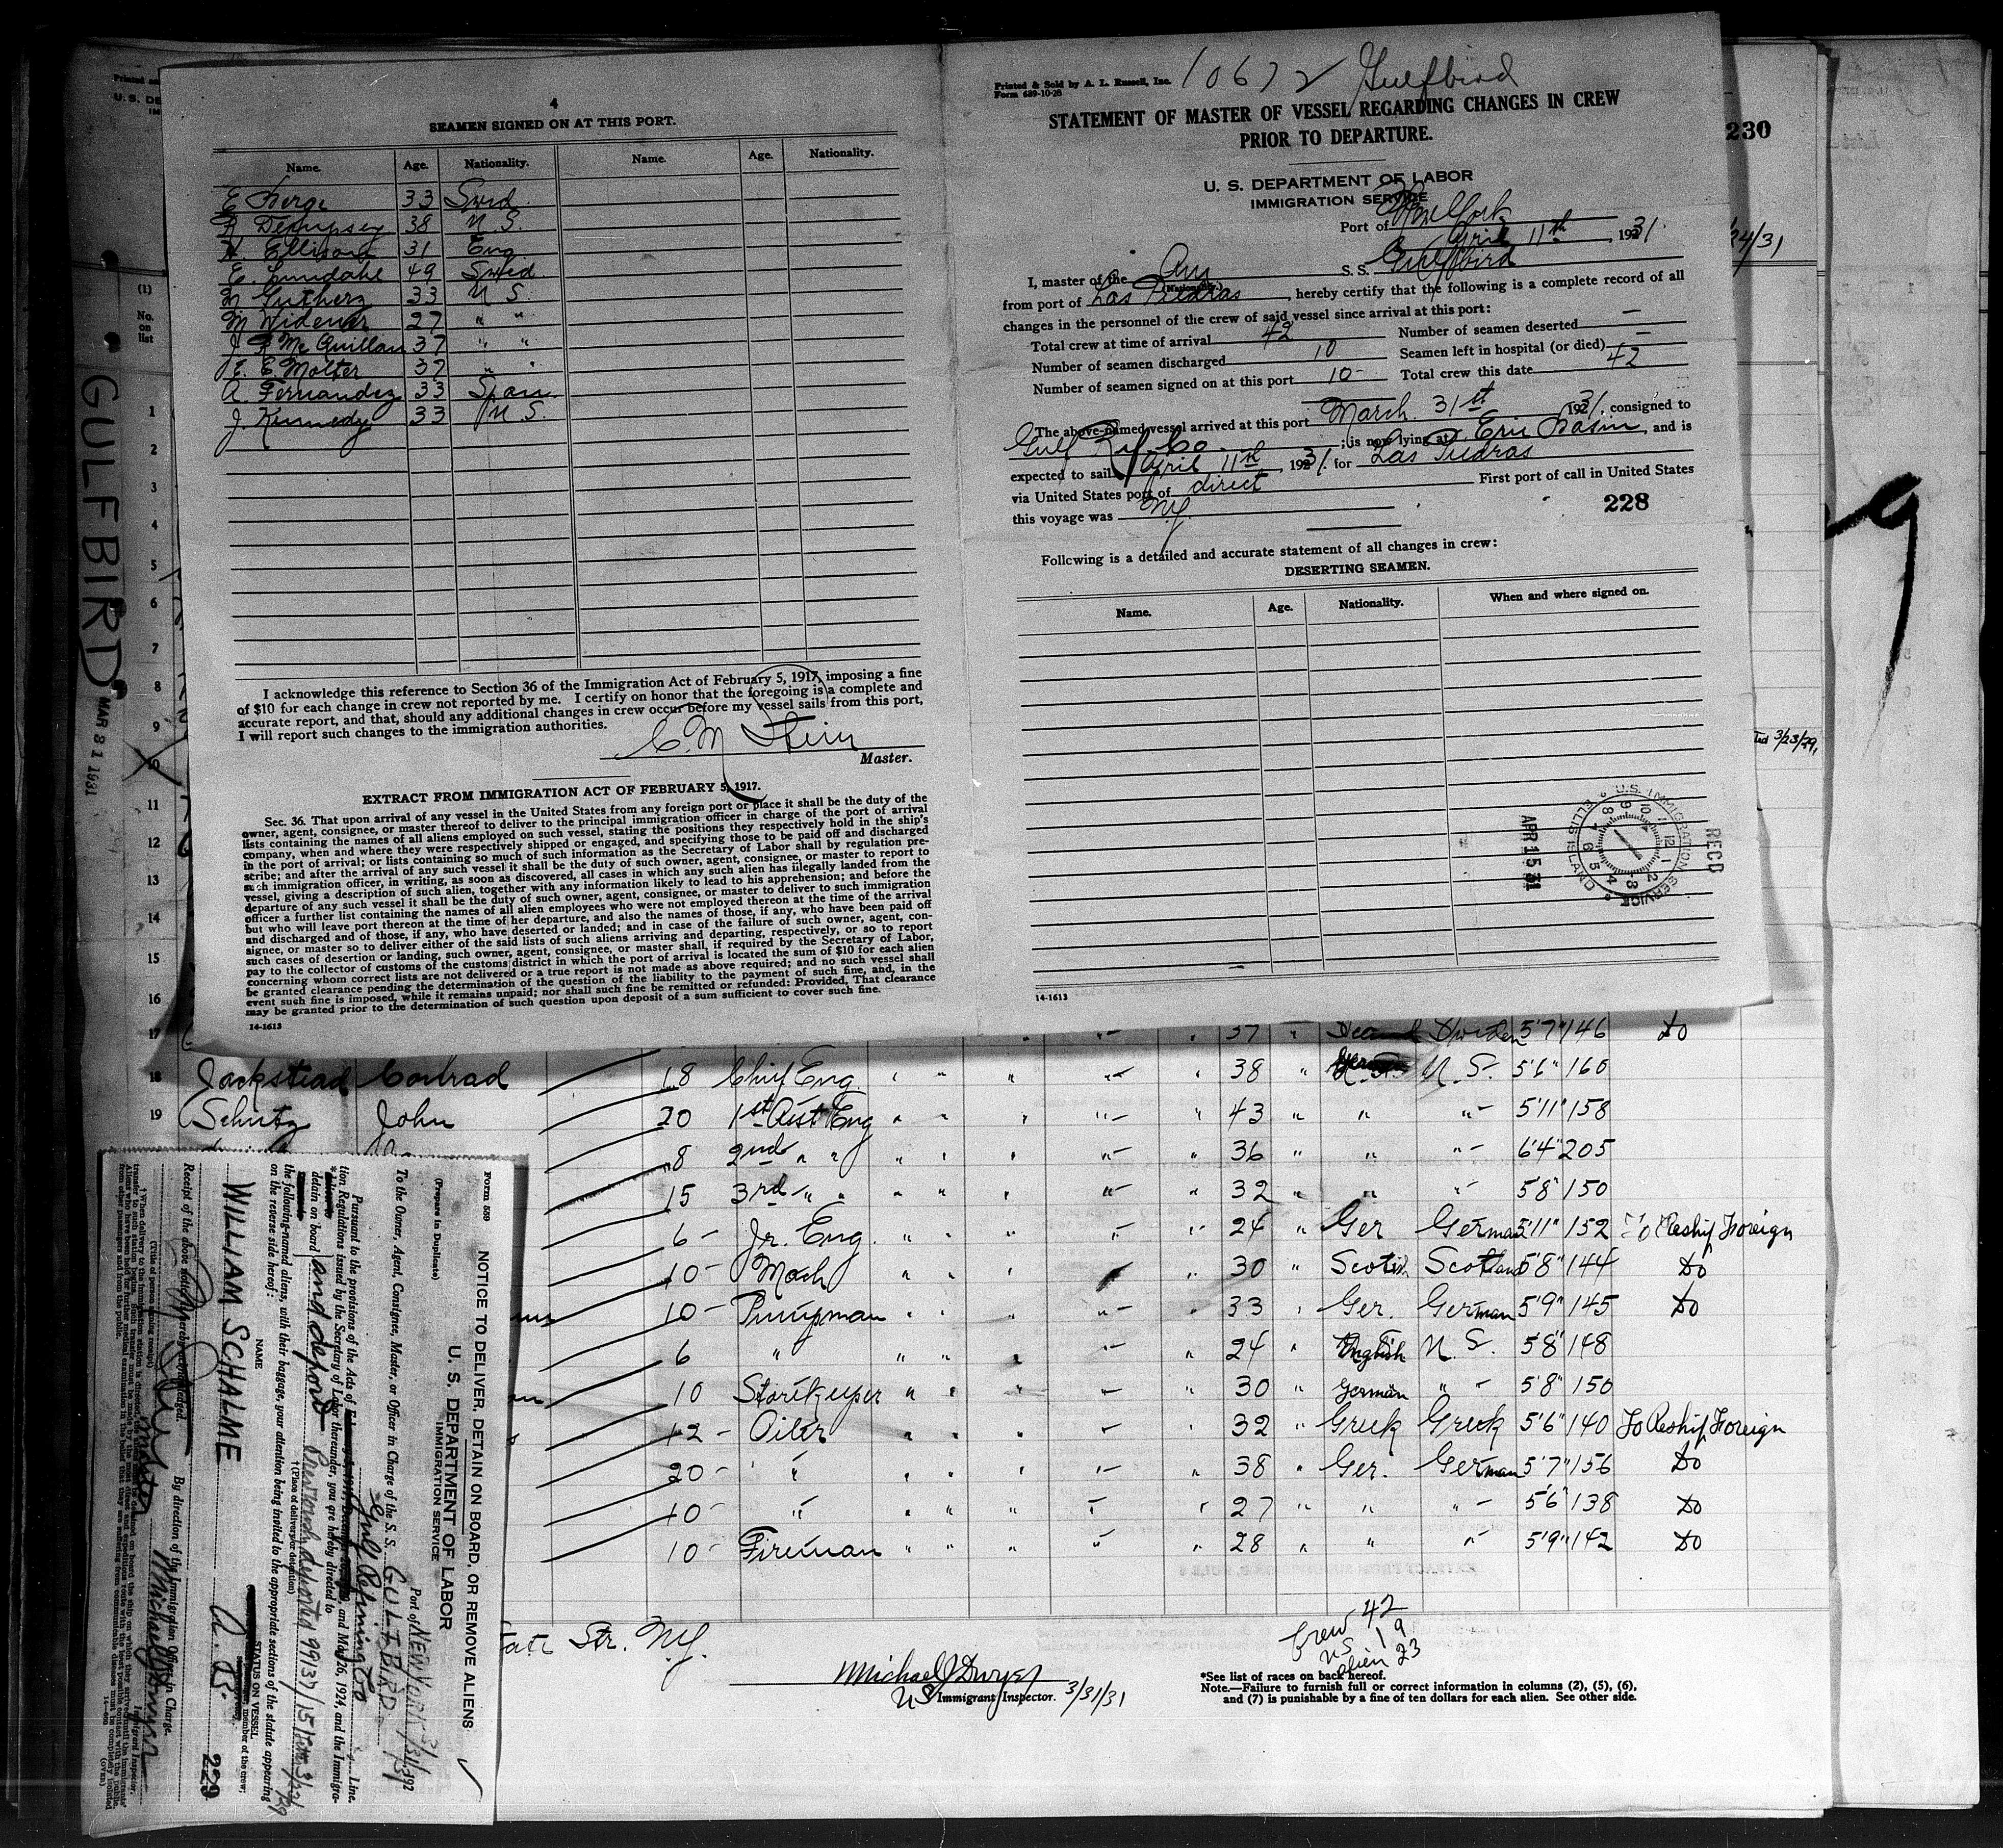 4
SEAMEN SIGNED ON AT THIS PORT.
Name. Age. Nationality. Name. Age. Nationality.
E 33 Swed.
Dempsey 38 U.S.
Ellison 31 Eng
E. Lundahl 49 Swed
M Gutherz 33 U S.
M Widener 27 " "
J P McQuillan 37 " "
E. E. Molter 37 " "
A. Fernandez 33 Span.
J. Kennedy 33 U.S.
I acknowledge this reference to Section 36 of the Immigration Act of February 5, 1917, imposing a fine
of $10 for each change in crew not reported by me. I certify on honor that the foregoing is a complete and
accurate report, and that, should any additional changes in crew occur before my vessel sails from this port,
I will report such changes to the immigration authorities.
C. M
Master.
EXTRACT FROM IMMIGRATION ACT OF FEBRUARY 5, 1917.
Sec. 36. That upon arrival of any vessel in the United States from any foreign port or place it shall be the duty of the
owner, agent, consignee, or master thereof to deliver to the principal immigration officer in charge of the port of arrival
lists containing the names of all aliens employed on such vessel, stating the positions they respectively hold in the ship's
company, when and where they were respectively shipped or engaged, and specifying those to be paid off and discharged
in the port of arrival; or lists containing so much of such information as the Secretary of Labor shall by regulation pre-
scribe; and after the arrival of any such vessel it shall be the duty of such owner, agent, consignee, or master to report to
such immigration officer, in writing, as soon as discovered, all cases in which any such alien has illegally landed from the
vessel, giving a description of such alien, together with any information likely to lead to his apprehension; and before the
departure of any such vessel it shall be the duty of such owner, agent, consignee, or master to deliver to such immigration
officer a further list containing the names of all alien employees who were not employed thereon at the time of the arrival
but who will leave port thereon at the time of her departure, and also the names of those, if any, who have been paid off
and discharged and of those, if any, who have deserted or landed; and in case of the failure of such owner, agent, con-
signee, or master so to deliver either of the said lists of such aliens arriving and departing, respectively, or so to report
such cases of desertion or landing, such owner, agent, consignee, or master shall, if required by the Secretary of Labor,
pay to the collector of customs of the customs district in which the port of arrival is located the sum of $10 for each alien
concerning whom correct lists are not delivered or a true report is not made as above required; and no such vessel shall
be granted clearance pending the determination of the question of the liability to the payment of such fine, and, in the
event such fine is imposed, while it remains unpaid; nor shall such fine be remitted or refunded: Provided, That clearance
may be granted prior to the determination of such question upon deposit of a sum sufficient to cover such fine.
14-1613
Printed & Sold by A. L. Russell, Inc.
Form 689-10-28
10672 Gulfbird
STATEMENT OF MASTER OF VESSEL REGARDING CHANGES IN CREW
PRIOR TO DEPARTURE.
U. S. DEPARTMENT OF LABOR
IMMIGRATION SERVICE
Port of New York
April 11th, 1931.
I, master of the Am (Nationality) S. S. Gulfbird
from port of Las Piedras, hereby certify that the following is a complete record of all
changes in the personnel of the crew of said vessel since arrival at this port:
Total crew at time of arrival 42 Number of seamen deserted —
Number of seamen discharged 10 Seamen left in hospital (or died) —
Number of seamen signed on at this port 10 Total crew this date 42
The above-named vessel arrived at this port March 31st, 1931, consigned to
Gulf Rif. Co.; is now lying at Erie Basin, and is
expected to sail April 11th, 1931. for Las Piedras
via United States port of direct First port of call in United States
this voyage was NY.
228
Following is a detailed and accurate statement of all changes in crew:
DESERTING SEAMEN.
Name. Age. Nationality. When and where signed on.
RECD
U.S. IMMIGRATION SERVICE ELLIS ISLAND
APR 15 31
14-1613
230
24/31
3/23/29,
9
GULFBIRD
MAR 31 1931
(1)
No.
on
list
1
2
3
4
5
6
7
8
9
10
11
12
13
14
15
16
17 37 " Sweden 5'7" 146 Do
18 Jackstead Conrad 18 Chief Eng. " " " "- " 38 " U. S. 5'6" 160
19 Schutz John 20 1st Asst Eng " " " "- " 43 " " "- 5'11" 158
8 2nd " " " " " "- " 36 " " "- 6'4" 205
15 3rd " " " " " "- " 32 " " "- 5'8" 150
6- Jr. Eng. " " " "- " 24 " Ger German 5'11" 152 To Reship Foreign
10- Mach " " " " 30 " Scotch Scotland 5'8" 144 Do
10- Pumpman " " " "- " 33 " Ger. German 5'9" 145 Do
6 " " " " "- " 24 " English U. S. 5'8" 148
10 Storekeeper " " " - " 30 " German " - 5'8" 150
12- Oiler " " " "- " 32 " Greek Greek 5'6" 140 To Reship Foreign
20- " " " " "- " 38 " Ger. German 5'7" 156 Do
10- " " " " "- " 27 " " "- 5'6" 138 Do
10- Fireman " " " "- " 28 " " "- 5'9" 142 Do
Str. N.Y.
Crew 42
US 19
Alien 23
Michael J Dwyer
US Immigrant Inspector. 3/31/31
*See list of races on back hereof.
Note.—Failure to furnish full or correct information in columns (2), (5), (6),
and (7) is punishable by a fine of ten dollars for each alien. See other side.
Form 559
NOTICE TO DELIVER, DETAIN ON BOARD, OR REMOVE ALIENS
(Prepare in Duplicate)
U. S. DEPARTMENT OF LABOR
IMMIGRATION SERVICE
Port of NEW YORK 3/31/31
To the Owner, Agent, Consignee, Master, or Officer in Charge of the S. S. GULFBIRD
Gulf Refining Co Line.
Pursuant to the provisions of the Acts of and May 26, 1924, and the Immigra-
tion Regulations issued by the Secretary of Labor thereunder, you are hereby directed to
detain on board and deport Previously deported 99137/151
†(Place of delivery or detention)
the following-named aliens, with their baggage, your attention being invited to the appropriate sections of the statute appearing
on the reverse side hereof:
NAME STATUS ON VESSEL
WILLIAM SCHALME A. B.
229
Receipt of the above notice is hereby acknowledged.
By direction of the Immigration Officer in Charge.
Master
Immigrant Inspector.
(Title of person signing receipt)
(OVER)